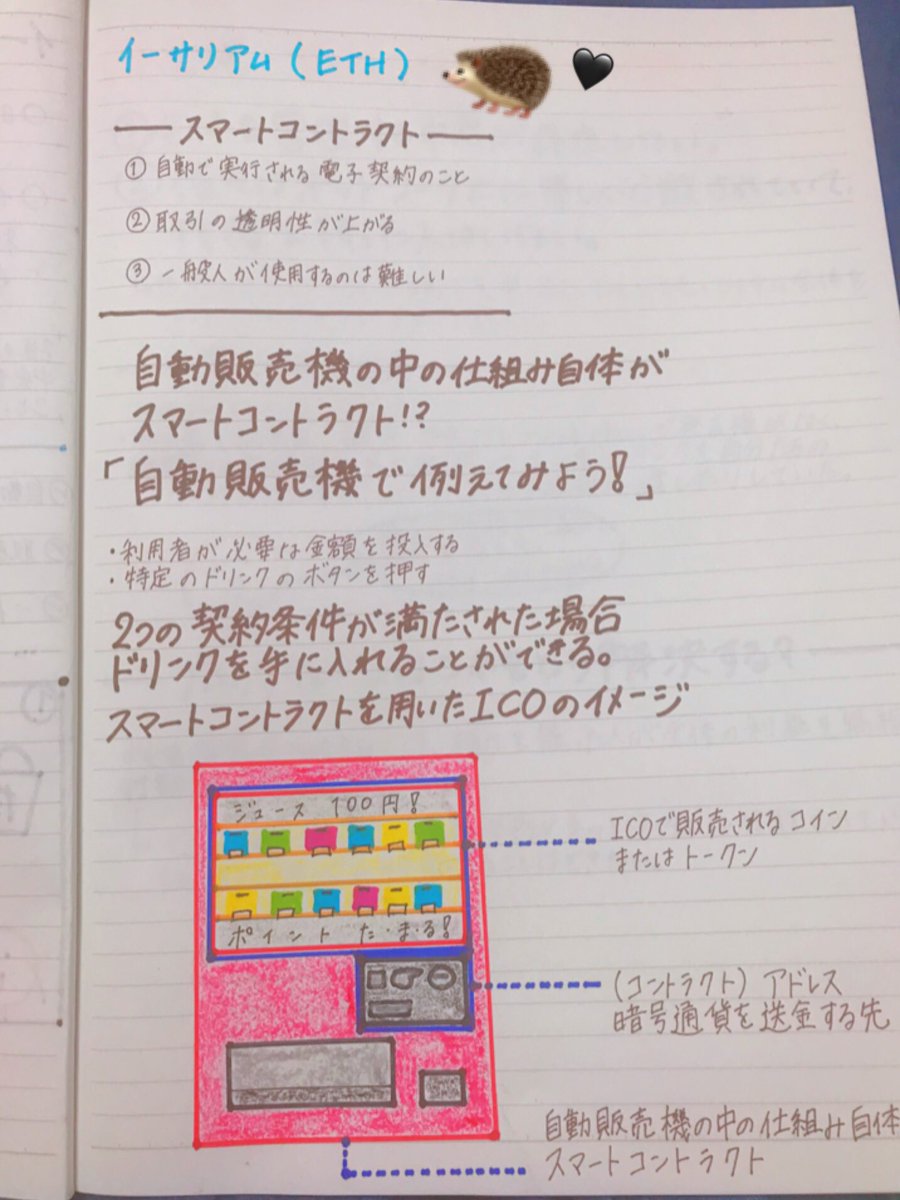 イーサリアム(ETH)
スマートコントラクト
① 自動で実行される電子契約のこと
② 取引の透明性が上がる
③ 一般人が使用するのは難しい
自動販売機の中の仕組み自体が
スマートコントラクト!?
「自動販売機で例えてみよう!」
・利用者が必要な金額を投入する
・特定のドリンクのボタンを押す
2つの契約条件が満たされた場合
ドリンクを手に入れることができる。
スマートコントラクトを用いたICOのイメージ
ジュース 100円!
ICOで販売されるコイン
またはトークン
ポイント た・ま・る!
(コントラクト)アドレス
暗号通貨を送金する先
自動販売機の中の仕組み自体
スマートコントラクト